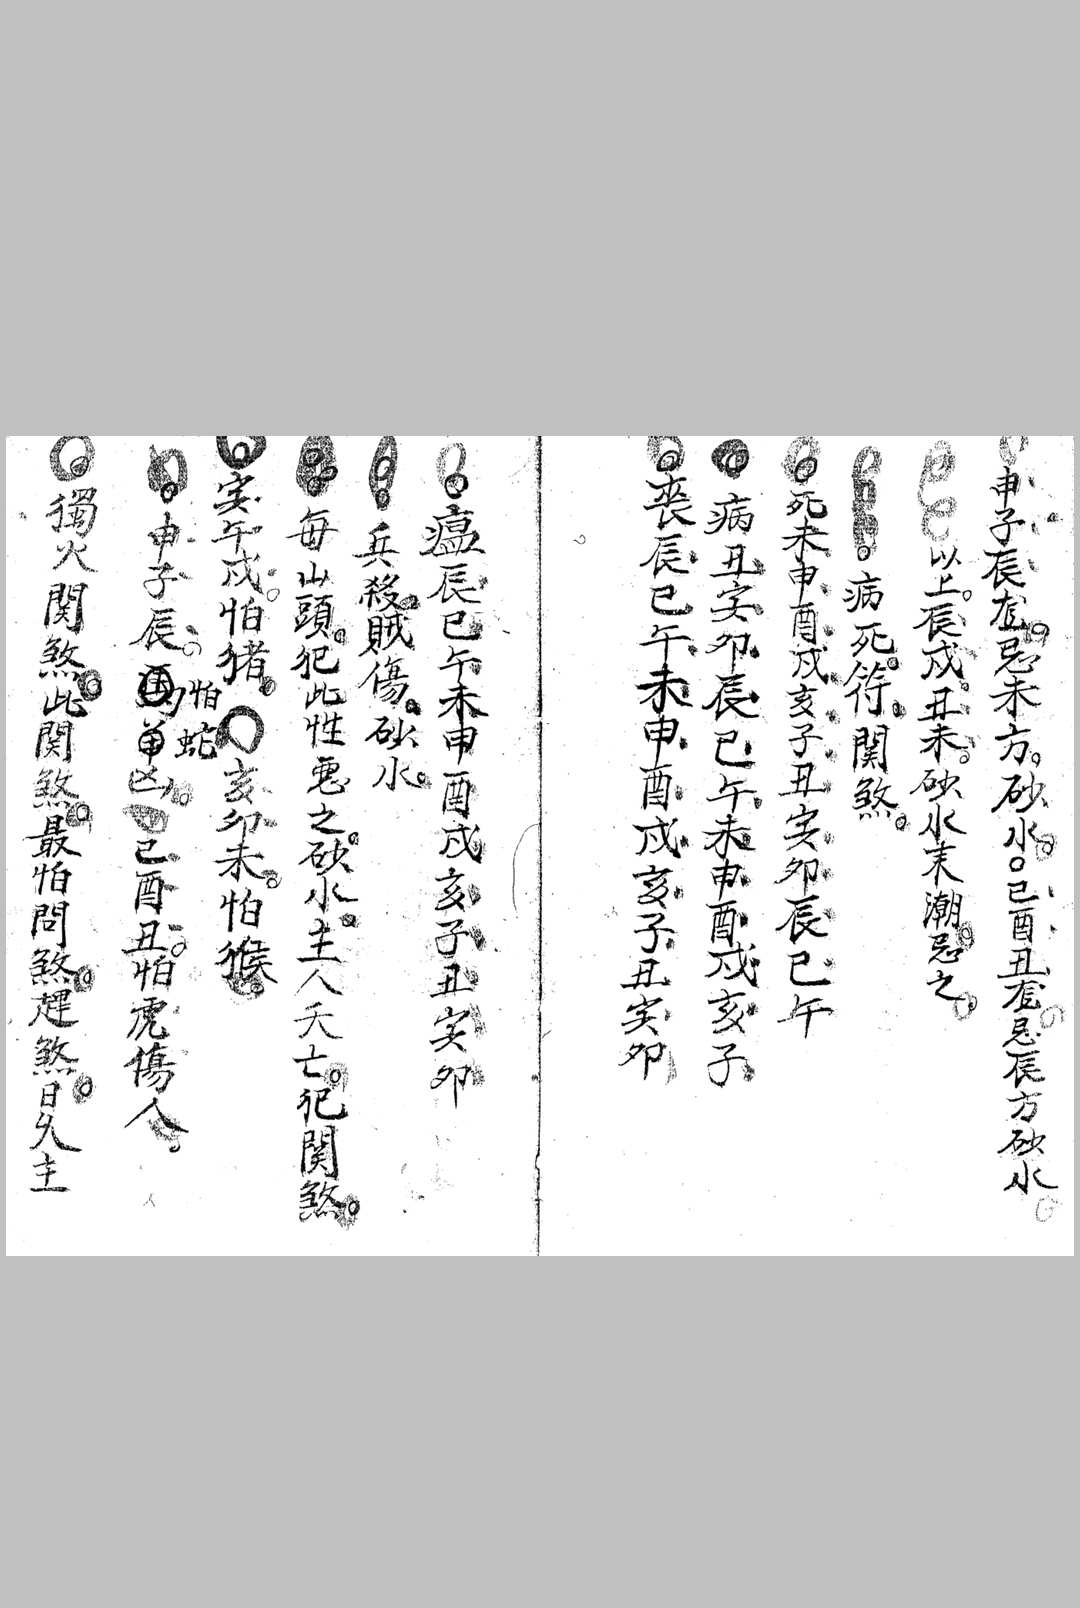 申子辰莊忌未方。砂水。巳酉丑莊忌辰方砂水
以上。辰戌丑未。砂水未潮忌之。
病死。符。関煞。
死未申酉戌亥子丑寅卯辰巳午
病丑寅卯辰巳午未申酉戌亥子
喪辰巳午未申酉戌亥子丑寅卯
瘟辰巳午未申酉戌亥子丑寅卯
兵殺。賊傷。砂水。
每山頭。犯此性惡之。砂水。主人夭亡。犯関煞。
寅午戌。怕猪。亥卯未。怕猴。
申子辰。怕蛇凶。巳酉丑。怕虎傷人。
獨火関煞。此関煞。最怕問煞。趕煞。日久主